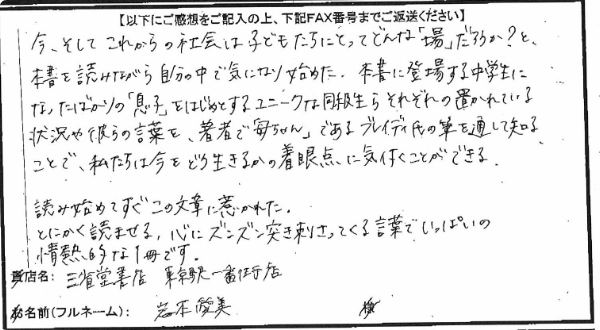 【以下にご感想をご記入の上、下記FAX番号までご返送ください】
今、そして これからの社会は子どもたちにとってどんな「場」だろうか?と、
本書を読みながら自分の中で気になり始めた。本書に登場する中学生に
なったばかりの「息子」をはじめとするユニークな同級生らそれぞれの置かれている
状況や彼らの言葉を、著者で「母ちゃん」であるブレイディ氏の筆を通して知る
ことで、私たちは今をどう生きるかの着眼点に気付くことができる。
読み始めてすぐこの文章に惹かれた。
とにかく読ませる、心にズンズン突き刺さってくる言葉でいっぱいの
情熱的な1冊です。
貴店名: 三省堂書店 東京駅一番街店
お名前(フルネーム): 岩本愛美 様